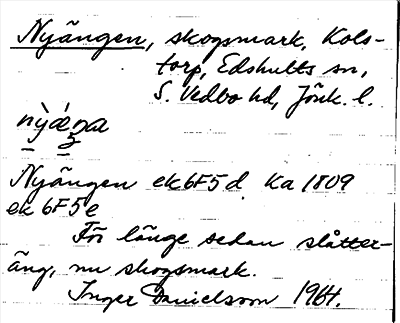 Nyängen, skogsmark, Kols-
torp, Edshults sn,
S. Vedbo hd, Jönk. l.
Nyängen ek 6F5d Ka 1809
ek 6F5e
För länge sedan slåtter-
äng, nu skogsmark.
Inger Danielsson 1964.